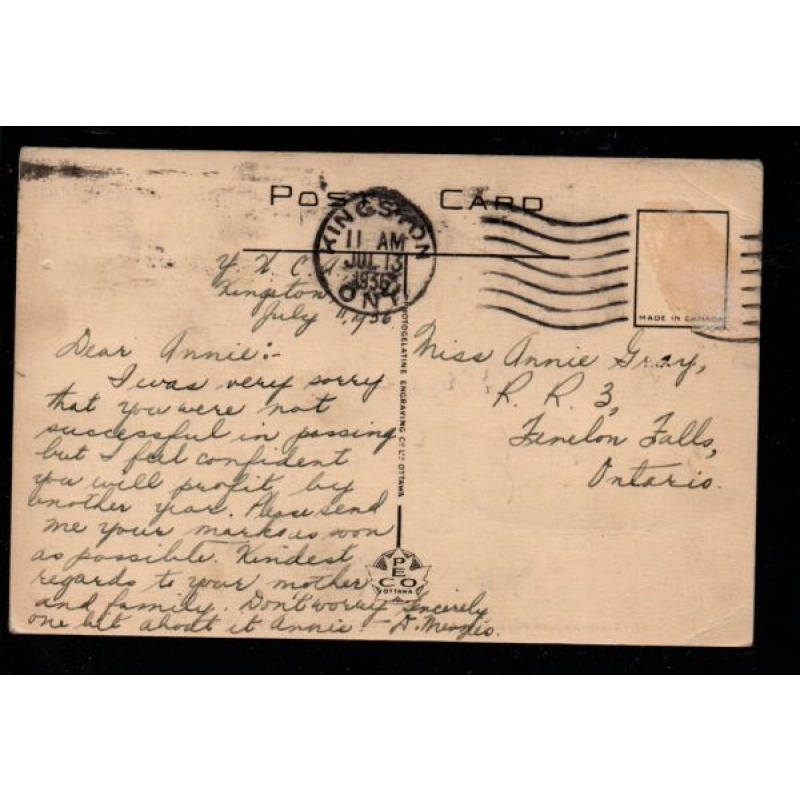 POST CARD
KINGSTON
11 AM
JUL 13
1936
ONT.
MADE IN CANADA
Y. W. C. A.
Kingston
July 11, 1936
Dear Annie:-
I was very sorry
that you were not
successful in passing
but I feel confident
you will profit by
another year. Please send
me your marks as soon
as possible. Kindest
regards to your mother
and family. Don't worry
one bit about it Annie.
Sincerely
D.
Miss Annie Gray,
R. R. 3,
Fenelon Falls,
Ontario.
PHOTOGELATINE ENGRAVING CO. LTD. OTTAWA
PECO
OTTAWA